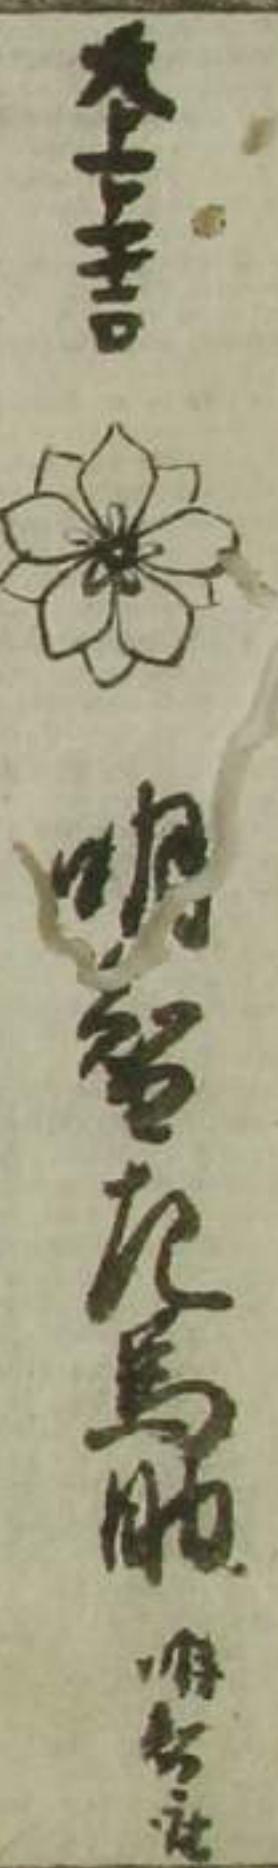 大上上吉
明智左馬助